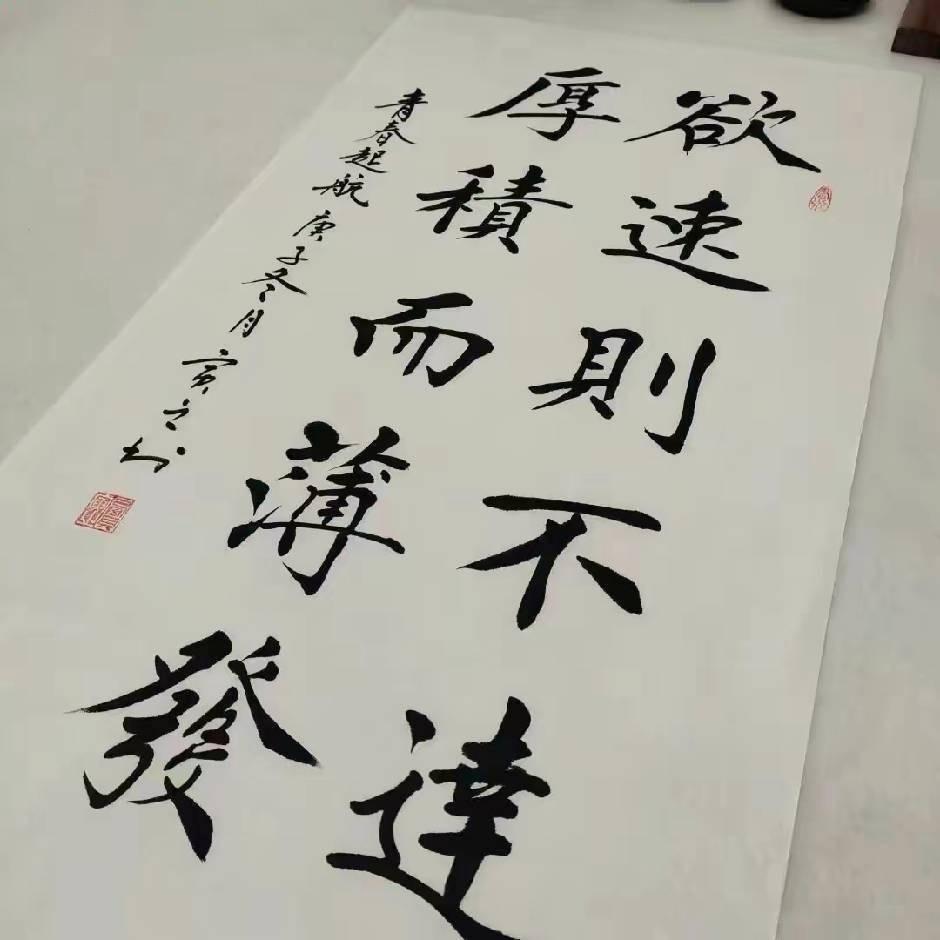 欲速則不達
厚積而薄發
青春起航 庚子冬月 寅之书